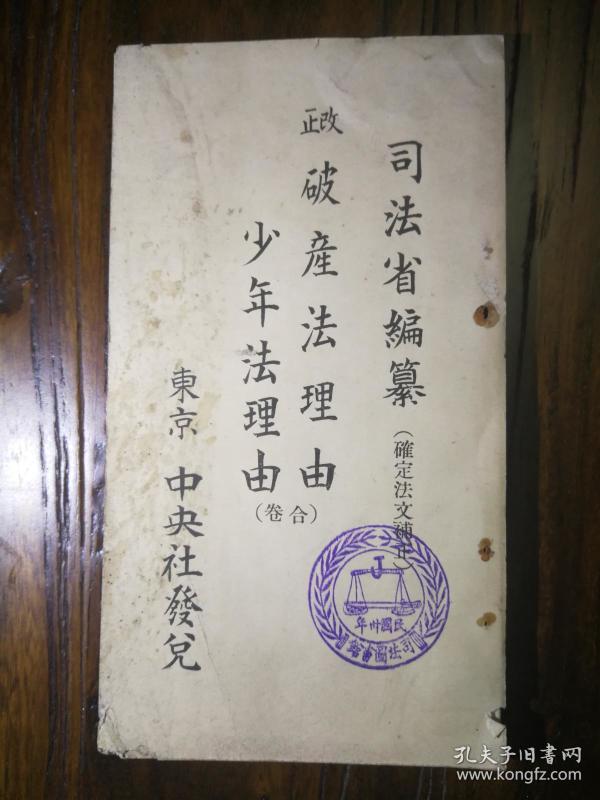 司法省編纂（確定法文補正）
改正破產法理由
少年法理由（合卷）
東京 中央社發兌
J
民國卅年
司法圖書館
孔夫子旧书网
www.kongfz.com